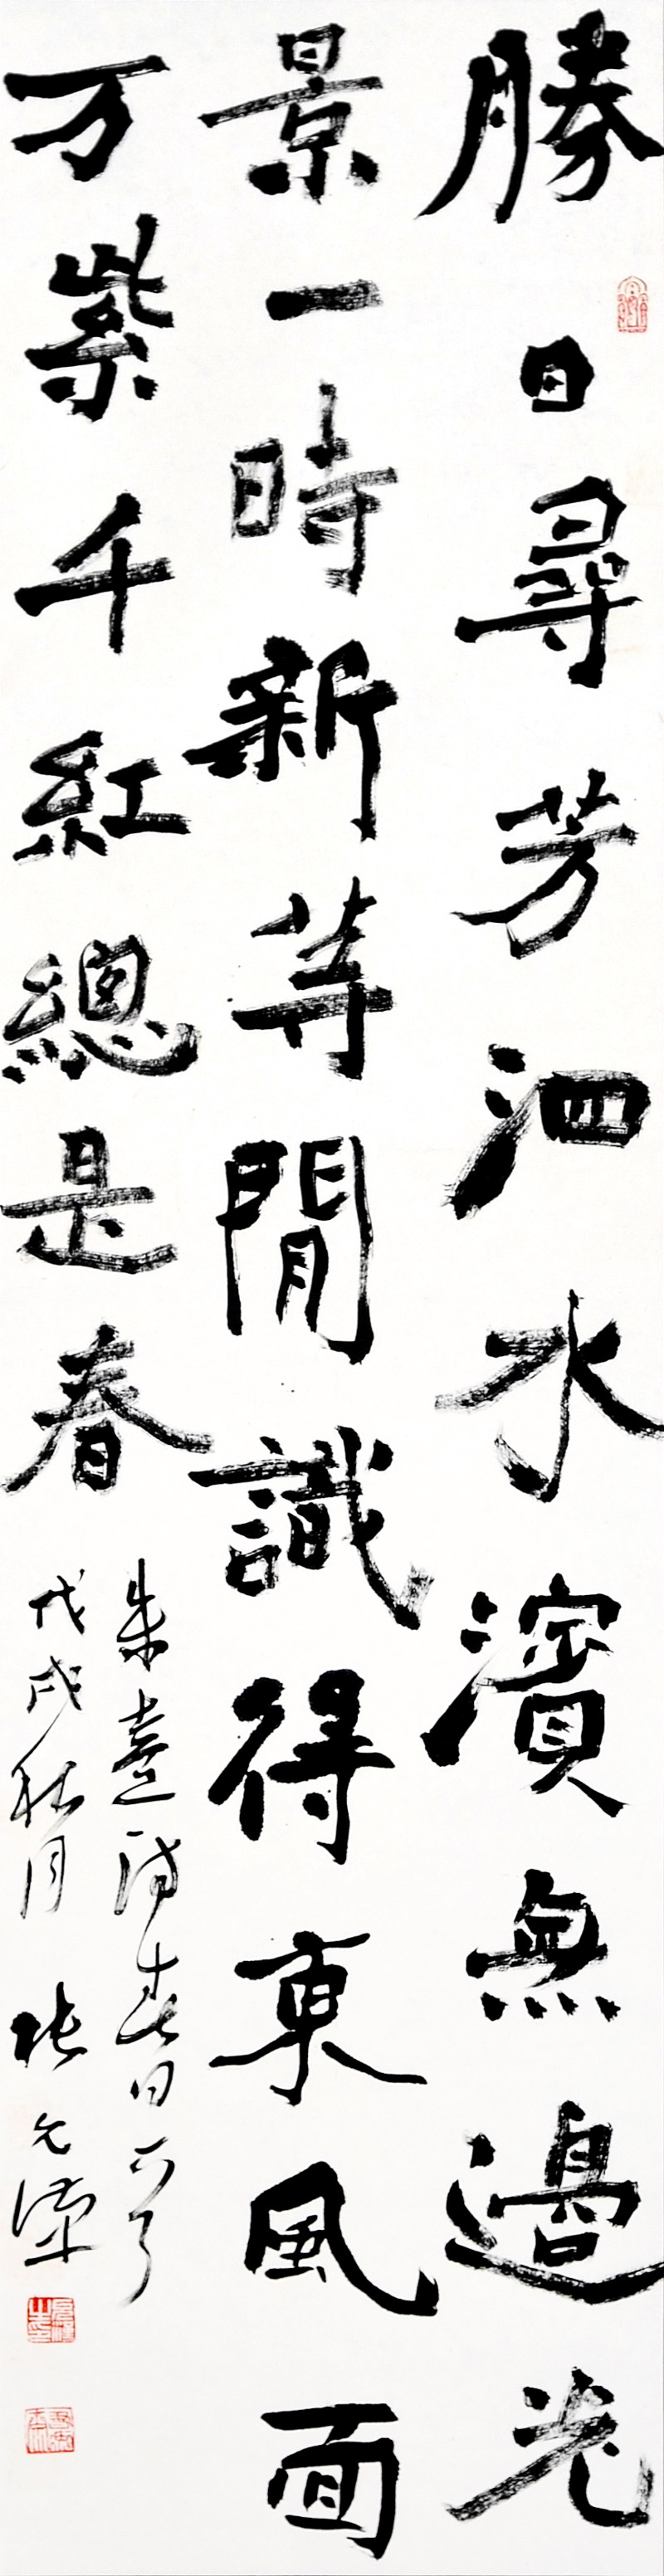 勝日尋芳泗水濱無邊光
景一時新等閒識得東風面
万紫千紅總是春
朱熹詩春日一首
戊戌秋月 張允